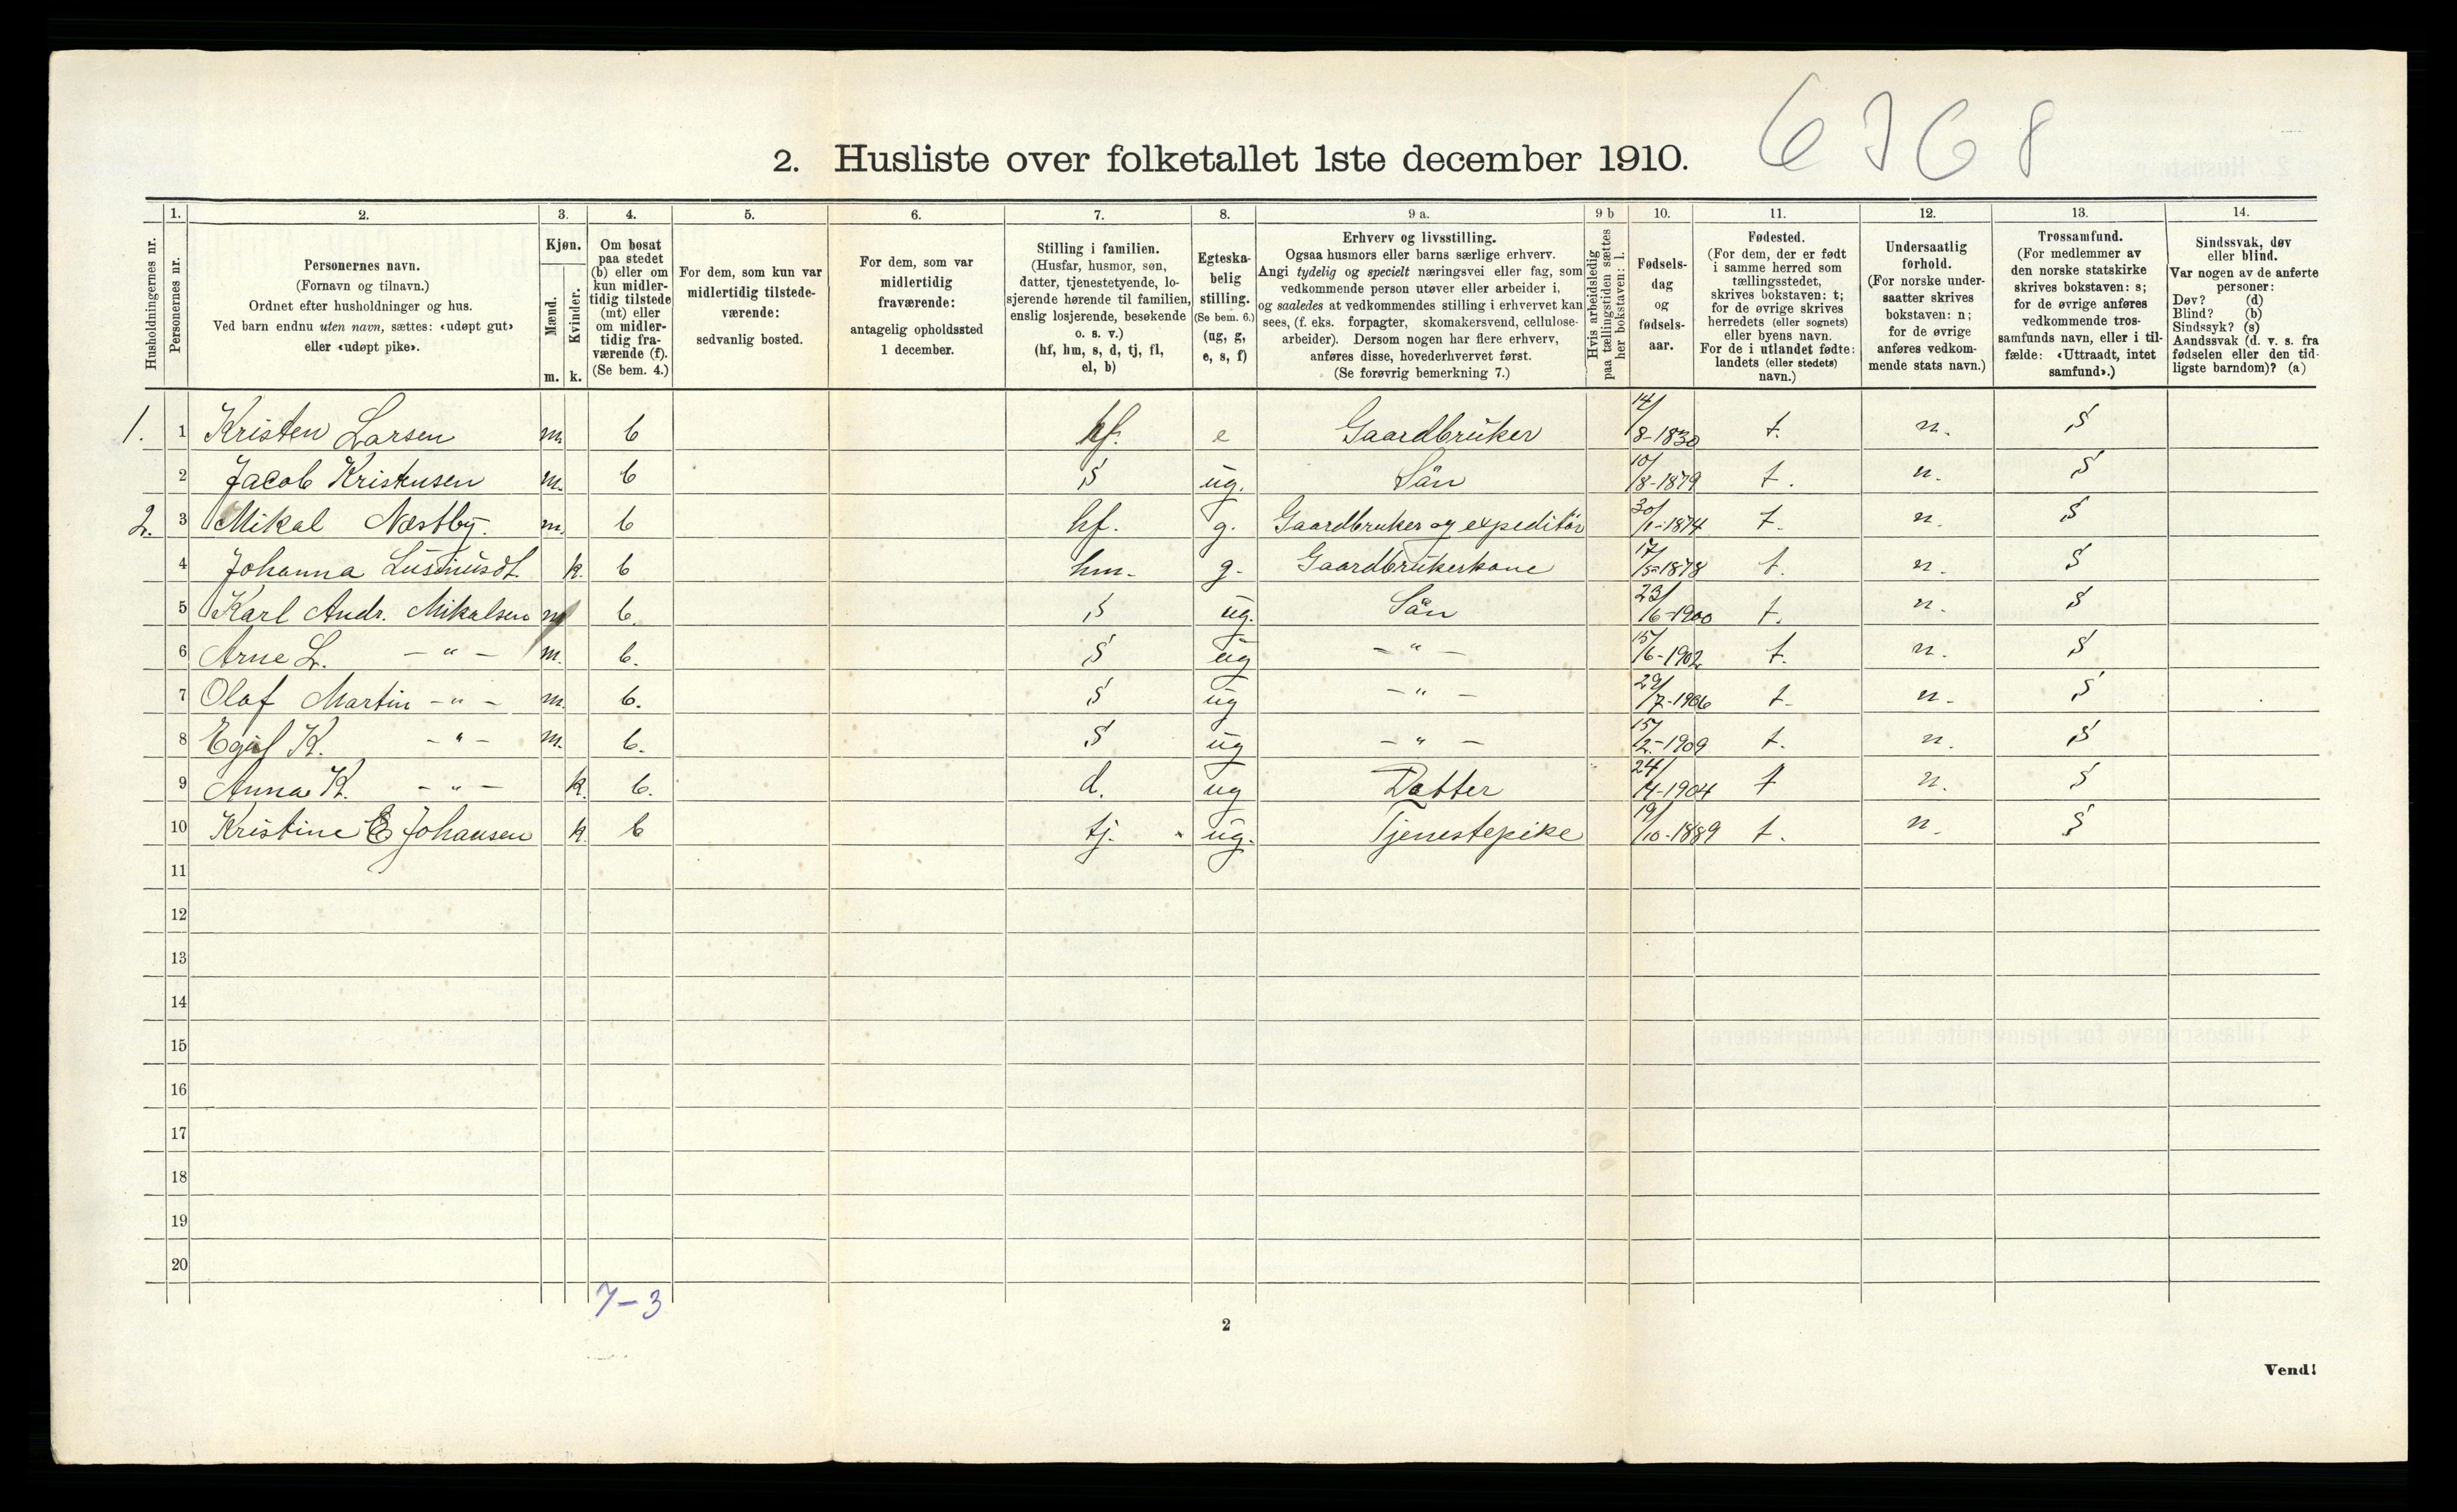 6368
2. Husliste over folketallet 1ste december 1910.
Husholdningernes nr.
1.
Personernes nr.
2.
Personernes navn.
(Fornavn og tilnavn.)
Ordnet efter husholdninger og hus.
Ved barn endnu uten navn, sættes: «udøpt gut»
eller «udøpt pike».
3.
Kjøn.
Mænd.
Kvinder.
m. k.
4.
Om bosat
paa stedet
(b) eller om
kun midler-
tidig tilstede
(mt) eller
om midler-
tidig fra-
værende (f).
(Se bem. 4.)
5.
For dem, som kun var
midlertidig tilstede-
værende:
sedvanlig bosted.
6.
For dem, som var
midlertidig
fraværende:
antagelig opholdssted
1 december.
7.
Stilling i familien.
(Husfar, husmor, søn,
datter, tjenestetyende, lo-
sjerende hørende til familien,
enslig losjerende, besøkende
o. s. v.)
(hf, hm, s, d, tj, fl,
el, b)
8.
Egteska-
belig
stilling.
(Se bem. 6.)
(ug, g,
e, s, f)
9 a.
Erhverv og livsstilling.
Ogsaa husmors eller barns særlige erhverv.
Angi tydelig og specielt næringsvei eller fag, som
vedkommende person utøver eller arbeider i,
og saaledes at vedkommendes stilling i erhvervet kan
sees, (f. eks. forpagter, skomakersvend, cellulose-
arbeider). Dersom nogen har flere erhverv,
anføres disse, hovederhvervet først.
(Se forøvrig bemerkning 7.)
9 b
Hvis arbeidsledig
paa tællingstiden sættes
her bokstaven: l.
10.
Fødsels-
dag
og
fødsels-
aar.
11.
Fødested.
(For dem, der er født
i samme herred som
tællingsstedet,
skrives bokstaven: t;
for de øvrige skrives
herredets (eller sognets)
eller byens navn.
For de i utlandet fødte:
landets (eller stedets)
navn.)
12.
Undersaatlig
forhold.
(For norske under-
saatter skrives
bokstaven: n;
for de øvrige
anføres vedkom-
mende stats navn.)
13.
Trossamfund.
(For medlemmer av
den norske statskirke
skrives bokstaven: s;
for de øvrige anføres
vedkommende tros-
samfunds navn, eller i til-
fælde: «Uttraadt, intet
samfund».)
14.
Sindssvak, døv
eller blind.
Var nogen av de anførte
personer:
Døv? (d)
Blind? (b)
Sindssyk? (s)
Aandssvak (d. v. s. fra
fødselen eller den tid-
ligste barndom)? (a)
1. 1 Kristen Larsen m. b hf. e Gaardbruker 14/8-1830 t. n. s
2 Jacob Kristensen m. b s ug. Sön 10/8-1879 t. n. s
2. 3 Mikal Næstby. m. b hf. g. Gaardbruker og expeditör 30/1-1874 t. n. s
4 Johanna k. b hm. g. Gaardbrukerkone 17/ -1878 t. n. s
5 Karl Andr. Mikalsen m b. s ug. Sön 23/6-1900 t. n. s
6 Arne L. - " - m. b. s ug - " - 15/6-1902 t. n. s
7 Olaf Martin - " - m. b. s ug - " - 29/7-1906 t. n. s
8 K. - " - m. b. s ug - " - 15/2-1909 t. n. s
9 Anna K. - " - k. b. d. ug Datter 24/4-1904 t n. s
10 Kristine E Johansen k. b tj. ug. Tjenestepike 19/10-1889 t. n. s
11
12
13
14
15
16
17
18
19
20
7-3
2
Vend!